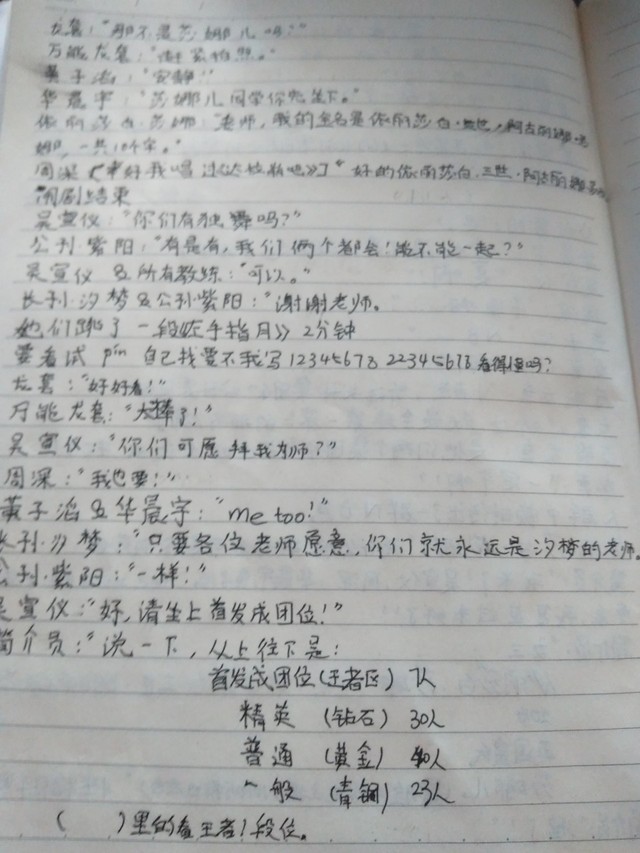 龙套：“那不是莎娜儿吗？”
万能龙套：“谢 紧抱 。”
黄子滔：“安静！”
华晨宇：“莎娜儿同学你先坐下。”
依丽莎白·莎娜：“老师，我的全名是依丽莎白·  ·阿古丽娜·
娜，一共10个字。”
周深《幸好我唱过《达拉崩吧》》“好的依丽莎白.三世·阿古丽娜
闹剧结束
吴宣仪：“你们有独舞吗？”
公孙紫阳：“有是有，我们俩个都会！能不能一起？”
吴宣仪&所有教练：“可以。”
长孙·汐梦&公孙紫阳：“谢谢老师。
她们跳了一段《左手指月》2分钟
要看试pin自己找要不我写12345678 22345678看得懂吗？
龙套：“好好看！”
万能龙套：“太棒了！”
吴宣仪：“你们可愿拜我为师？”
周深：“我也要！”
黄子滔&华晨宇：“me too！”
长孙·汐梦：“只要各位老师愿意，你们就永远是汐梦的老师。
公孙·紫阳：“一样！”
吴宣仪：“好，请坐上首发成团位！”
简介员：“说一下，从上往下是：
首发成团位（王者区）7人
精英（钻石）30人
普通（黄金）40人
一般（青铜）23人
（ ）里的看王者1段位。